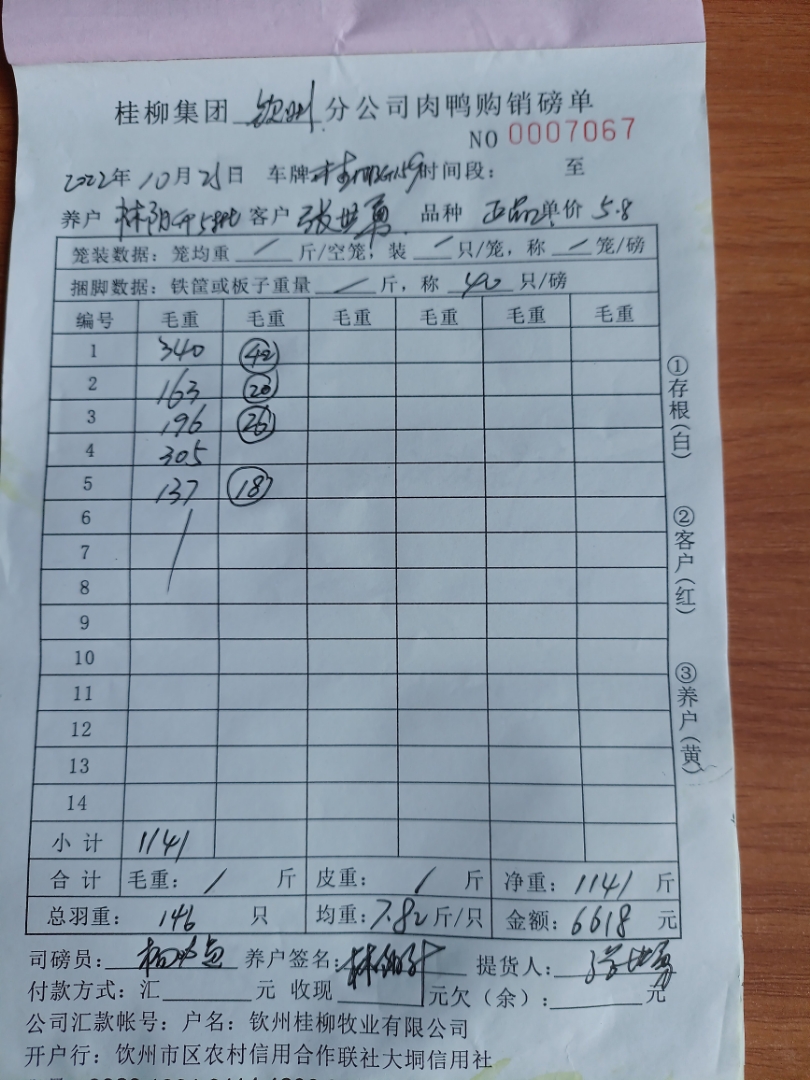 桂柳集团 钦州 分公司肉鸭购销磅单
NO 0007067
2022年 10月 25日 车牌: 时间段: 至
养户 客户 张世勇 品种 正品 单价 5.8
笼装数据: 笼均重 / 斤/空笼, 装 / 只/笼, 称 / 笼/磅
捆脚数据: 铁筐或板子重量 / 斤, 称 40 只/磅
编号 毛重 毛重 毛重 毛重 毛重 毛重
1 340 42
2 163 20
3 196 26
4 305
5 137 18
6
7
8
9
10
11
12
13
14
小计 1141
合计 毛重: / 斤 皮重: / 斤 净重: 1141 斤
总羽重: 146 只 均重: 7.82 斤/只 金额: 6618 元
司磅员: 养户签名: 提货人: 张世勇
付款方式: 汇 元 收现 元欠(余): 元
公司汇款帐号: 户名: 钦州桂柳牧业有限公司
开户行: 钦州市区农村信用合作联社大垌信用社
①存根(白)
②客户(红)
③养户(黄)